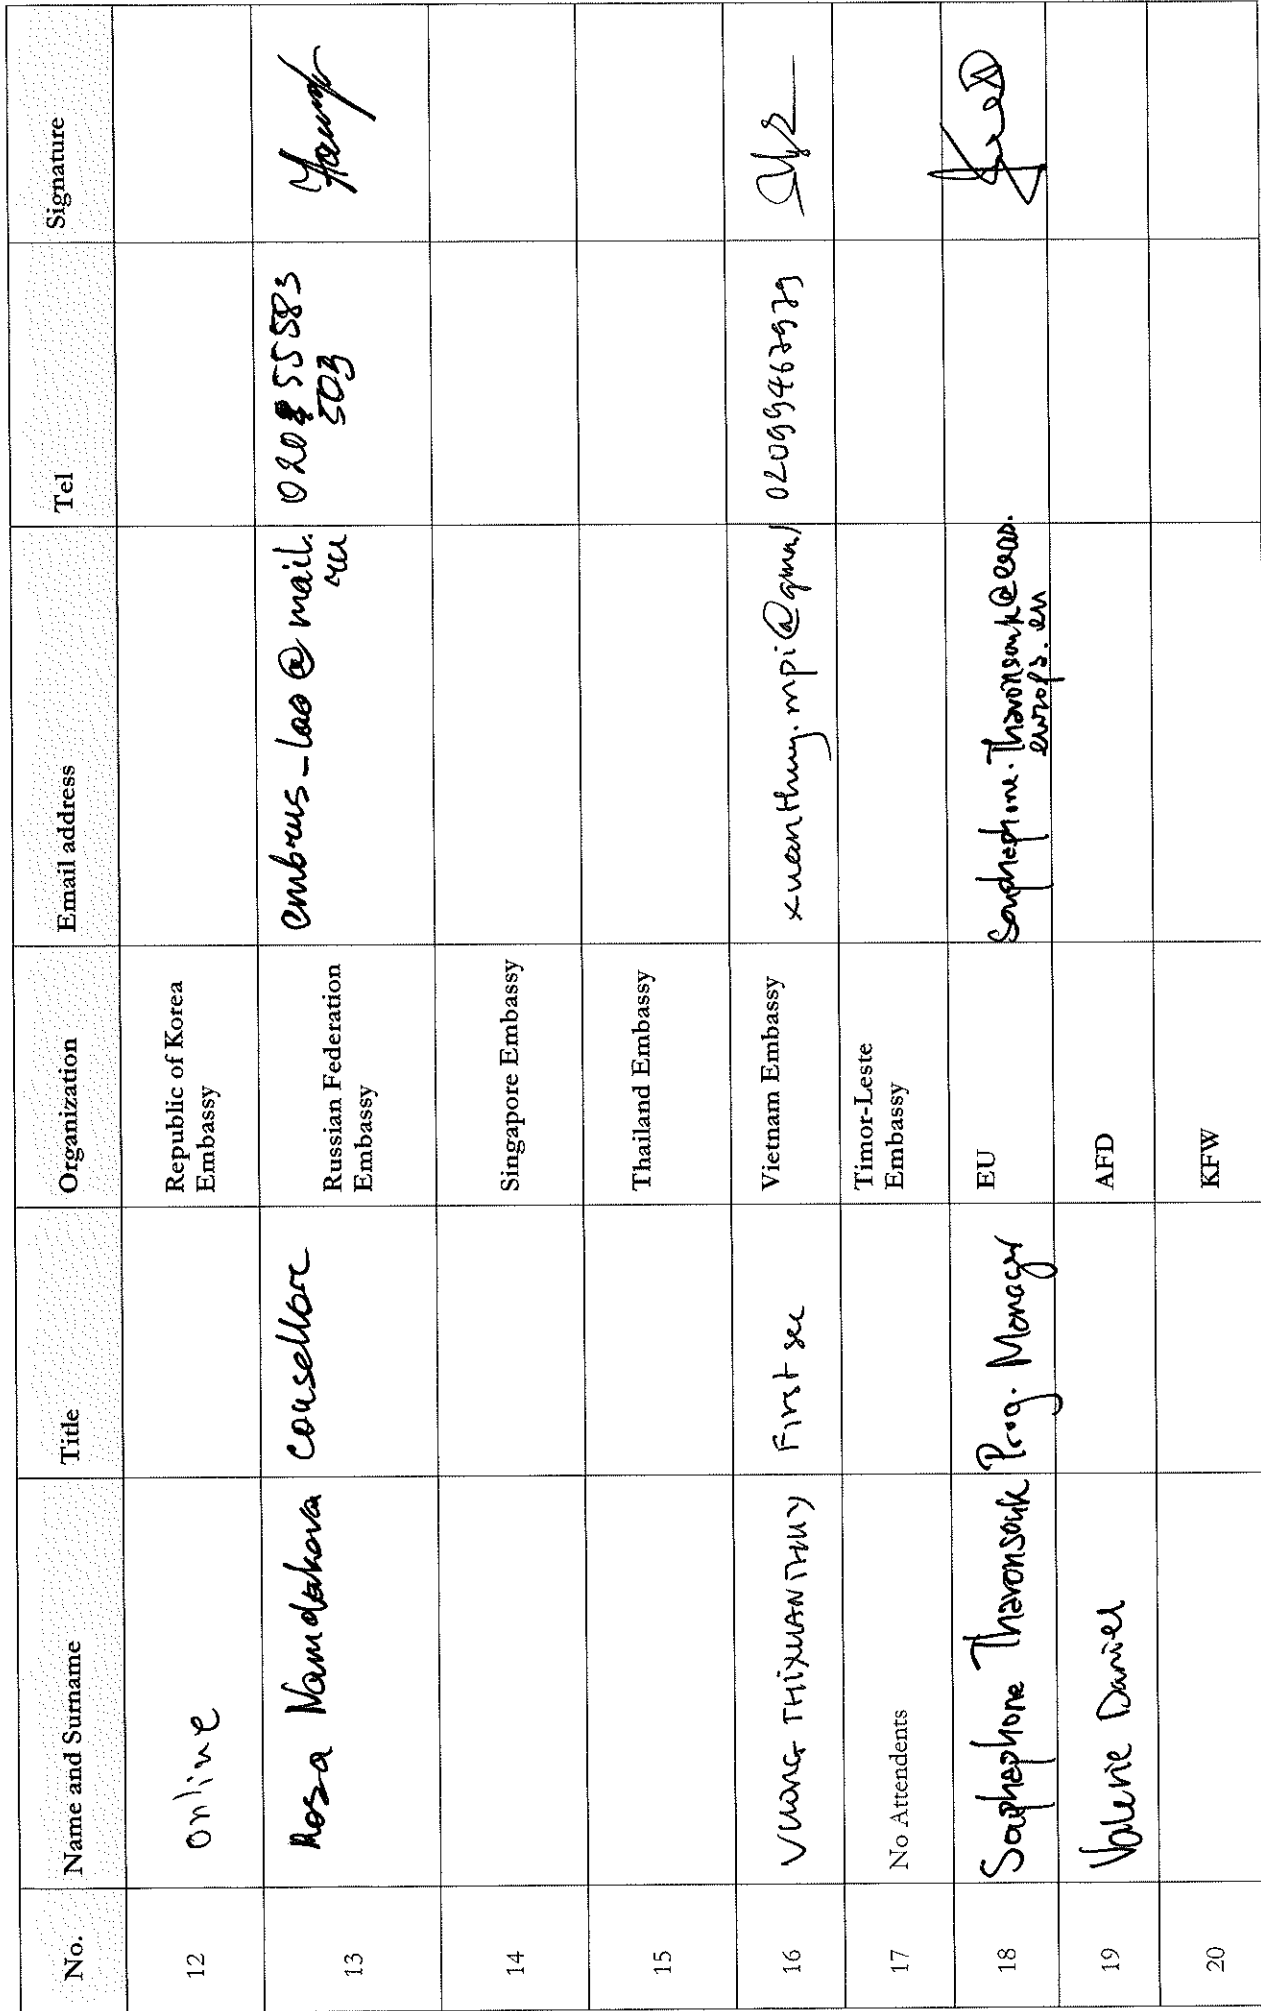 No. Name and Surname Title Organization Email address Tel Signature
12 online Republic of Korea
Embassy
13 Rosa Namdakova Consellore Russian Federation embrus-lao@mail. 020 55583
Embassy ru 503
14 Singapore Embassy
15 Thailand Embassy
16 VUONG THI XUAN THUY First sec Vietnam Embassy xuanthuy.mpi@gmail
17 No Attendents Timor-Leste
Embassy
18 Souphaphone Thavonsouk Prog. Manager EU Souphaphone.Thavonsouk@eeas.
europa.eu
19 Valerie Daniel AFD
20 KFW